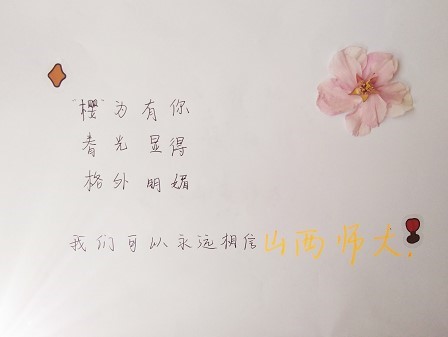 "樱"为有你
春光显得
格外明媚
我们可以永远相信山西师大!